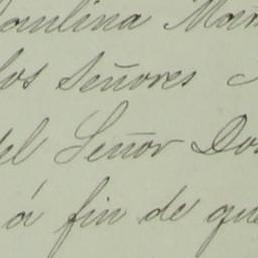 Paulina Mar
los Señores
del Señor Do
á fin de que